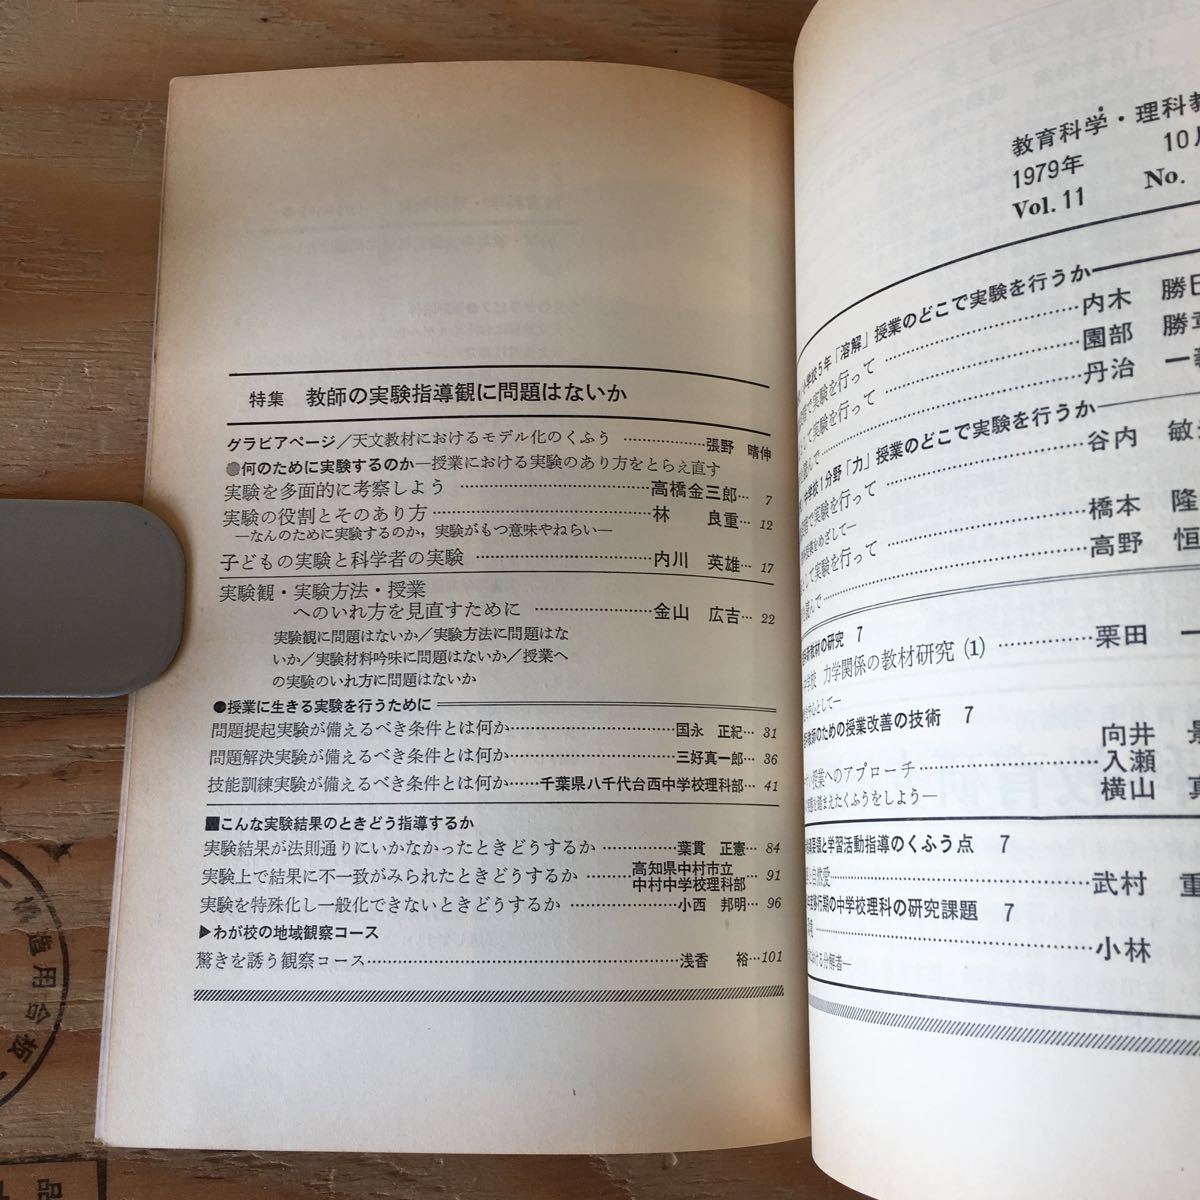 特集 教師の実験指導観に問題はないか
グラビアページ/天文教材におけるモデル化のくふう ……………張野 晴伸
●何のために実験するのか―授業における実験のあり方をとらえ直す
実験を多面的に考察しよう ……………高橋金三郎… 7
実験の役割とそのあり方……………林 良重… 12
―なんのために実験するのか，実験がもつ意味やねらい―
子どもの実験と科学者の実験 ……………内川 英雄… 17
実験観・実験方法・授業
へのいれ方を見直すために ……………金山 広吉… 22
実験観に問題はないか/実験方法に問題はな
いか/実験材料吟味に問題はないか/授業へ
の実験のいれ方に問題はないか
●授業に生きる実験を行うために
問題提起実験が備えるべき条件とは何か……………国永 正紀… 31
問題解決実験が備えるべき条件とは何か……………三好真一郎… 36
技能訓練実験が備えるべき条件とは何か……千葉県八千代台西中学校理科部… 41
■こんな実験結果のときどう指導するか
実験結果が法則通りにいかなかったときどうするか ……………葉貫 正憲… 84
実験上で結果に不一致がみられたときどうするか ………高知県中村市立
中村中学校理科部… 91
実験を特殊化し一般化できないときどうするか ……………小西 邦明… 96
▶わが校の地域観察コース
驚きを誘う観察コース……………浅香 裕…101
教育科学・理科教
1979年 10月
Vol. 11 No.
小学校5年「溶解」授業のどこで実験を行うか
で実験を行って……………内木 勝
して実験を行って……………園部 勝章
読んで……………丹治 一
中学校1分野「力」授業のどこで実験を行うか
で実験を行って……………谷内 敏
授業をめざして―
して実験を行って……………橋本 隆
読んで……………高野 恒
教材の研究 7
学校 力学関係の教材研究 (1) ……………栗田 一
中心として―
教師のための授業改善の技術 7
授業へのアプローチ……………向井 景
入瀬
横山 真
を踏まえたくふうをしよう―
と学習活動指導のくふう点 7
自然愛……………武村 重
移行期の中学校理科の研究課題 7
……………小林
における分解者―
構造用合板
品